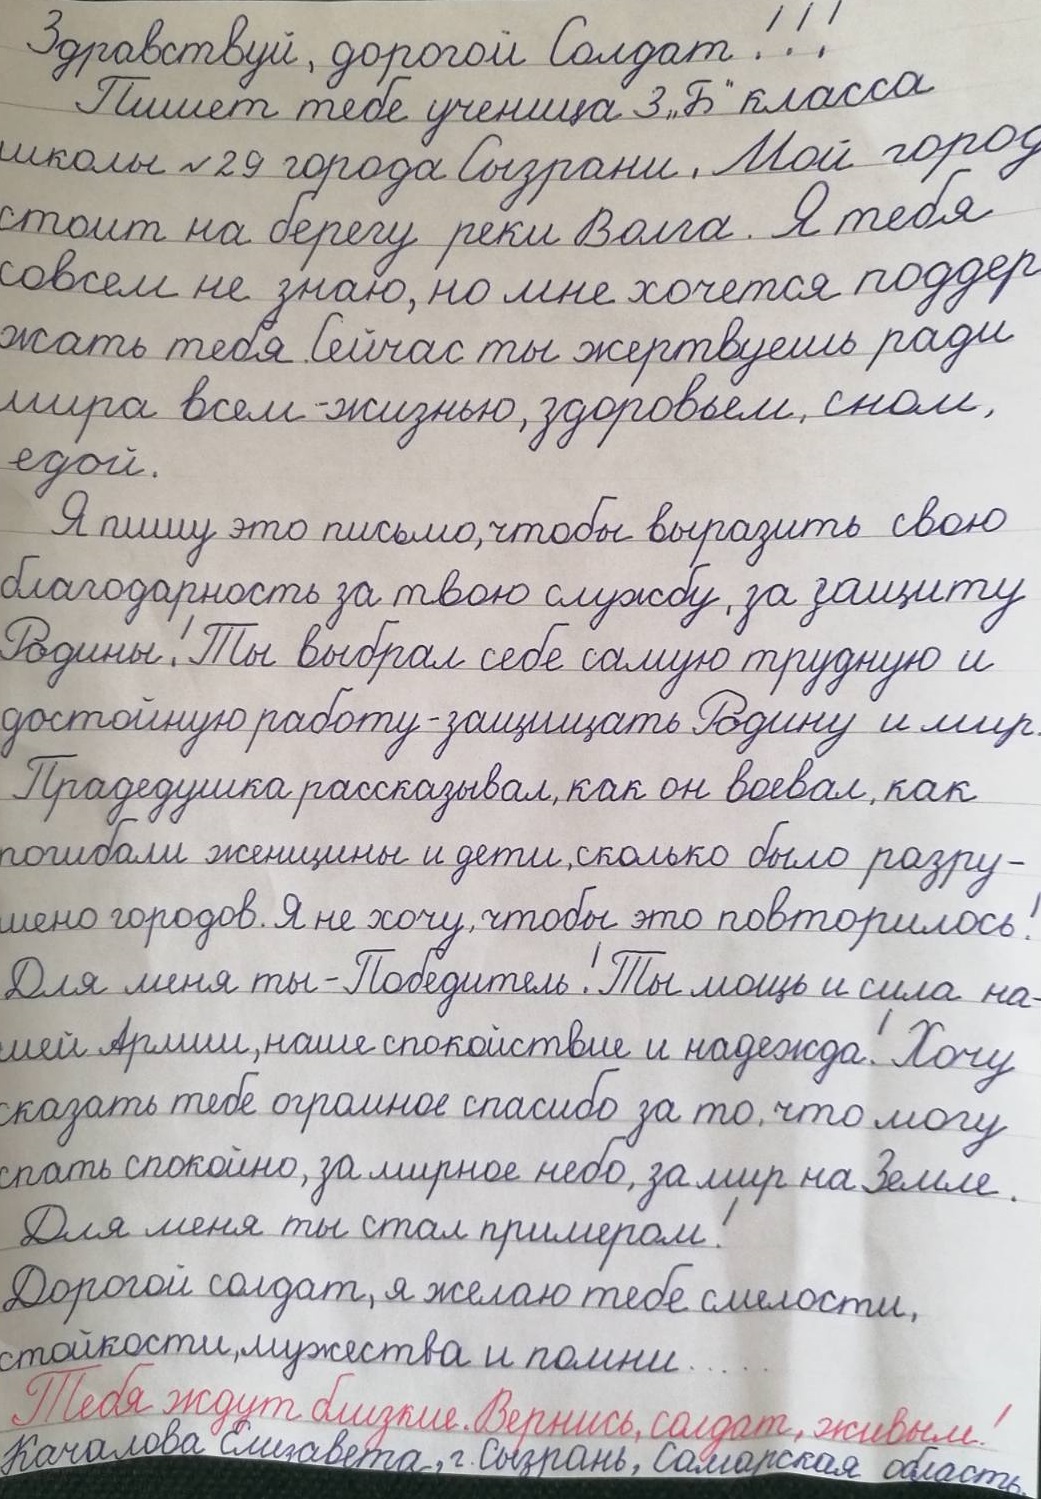 Здравствуй, дорогой Солдат!!!
Пишет тебе ученица 3 „Б" класса
школы №29 города Сызрани. Мой город
стоит на берегу реки Волга. Я тебя
совсем не знаю, но мне хочется поддер
жать тебя. Сейчас ты жертвуешь ради
мира всем - жизнью, здоровьем, сном,
едой.
Я пишу это письмо, чтобы выразить свою
благодарность за твою службу, за защиту
Родины! Ты выбрал себе самую трудную и
достойную работу - защищать Родину и мир.
Прадедушка рассказывал, как он воевал, как
погибали женщины и дети, сколько было разру-
шено городов. Я не хочу, чтобы это повторилось!
Для меня ты - Победитель! Ты мощь и сила на-
шей Армии, наше спокойствие и надежда! Хочу
сказать тебе огромное спасибо за то, что могу
спать спокойно, за мирное небо, за мир на Земле.
Для меня ты стал примером!
Дорогой солдат, я желаю тебе смелости,
стойкости, мужества и помни.....
Тебя ждут близкие. Вернись, солдат, живым!
Качалова Елизавета, г. Сызрань, Самарская область.